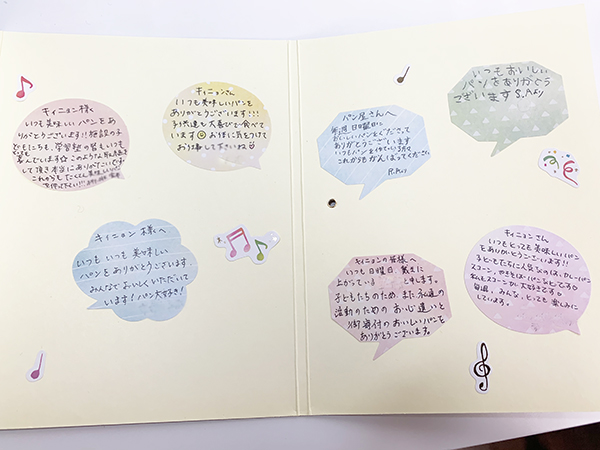 キィニョン様へ
いつも美味しいパンをあ
りがとうございます!!施設の子
どもにたちも、学習塾の皆もいつも
喜んでいます☆このような取り組みを
して頂き本当にありがたいです
これからもたくさん美味しいパン
を作って下さい!!!
キィニョンさん
いつも美味しいパンを
ありがとうございます!!!
子供達も大喜びで食べて
います
お体に気をつけて
お仕事して下さいね
キィニョン様へ
いつもいつも美味しい
パンをありがとうございます。
みんなでおいしくいただいて
います!パン大好き!
パン屋さんへ
毎週日曜日に
おいしいパンをくださって
ありがとうございます
いつもパンを作っている方々
これからもがんばってください。
R.Aより
いつもおいしい
パンをありがとう
ございます S.Aより
キィニョンの皆様へ
いつも日曜日、戴きに
上がっている と申します。
子どもたちのため、また私達の
活動のためのお心遣いと
御寄付のおいしいパンを
ありがとうございます。
キィニョンさん
いつもとっても美味しいパン
をありがとうございます!!
子どもたちに人気なのは、カレーパン
スコーン、やきそばパンなどです☆
私もスコーンが大好きです☆
毎週、みんな、とっても楽しみに
しています。